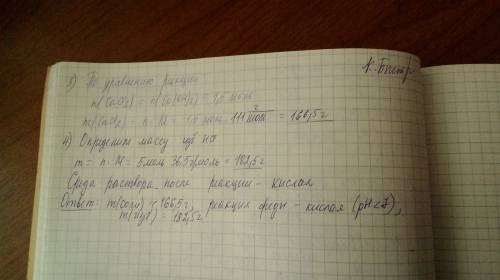 К. Быстр
3) По уравнению реакции
n(CaCl2) = n(Ca(OH)2) = 1,5 моль
m(CaCl2) = n · M = 1,5 моль · 111 г/моль = 166,5 г
4) Определим массу изб HCl
m = n · M = 5 моль · 36,5 г/моль = 182,5 г
Среда раствора после реакции - кислая
Ответ: m(соли) = 166,5 г; реакция среды - кислая (pH<7),
m(изб) = 182,5 г